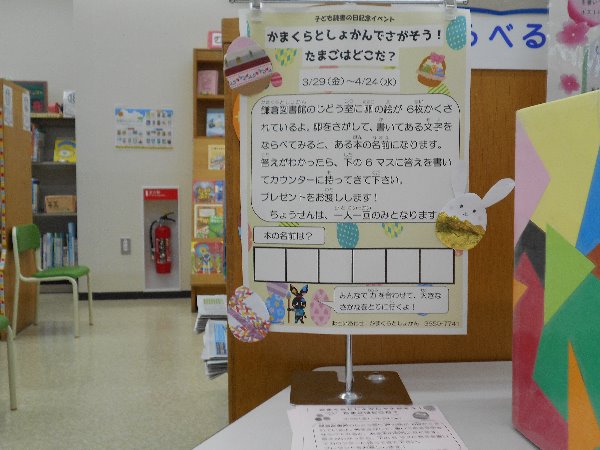 子ども読書の日記念イベント
かまくらとしょかんでさがそう！
たまごはどこだ？
3/29(金)～4/24(水)
鎌倉図書館のじどう室に卵の絵が 6枚かくさ
れているよ。卵をさがして、書いてある文字を
ならべてみると、ある本の名前になります。
答えがわかったら、下の 6 マスに答えを書い
てカウンターに持ってきて下さい。
プレゼントをお渡しします！
ちょうせんは、一人一豆のみとなります
本の名前は？
みんなで力を合わせて、大きな
さかなをとりに行くよ！
かまくらとしょかん 3550-7741
らべる